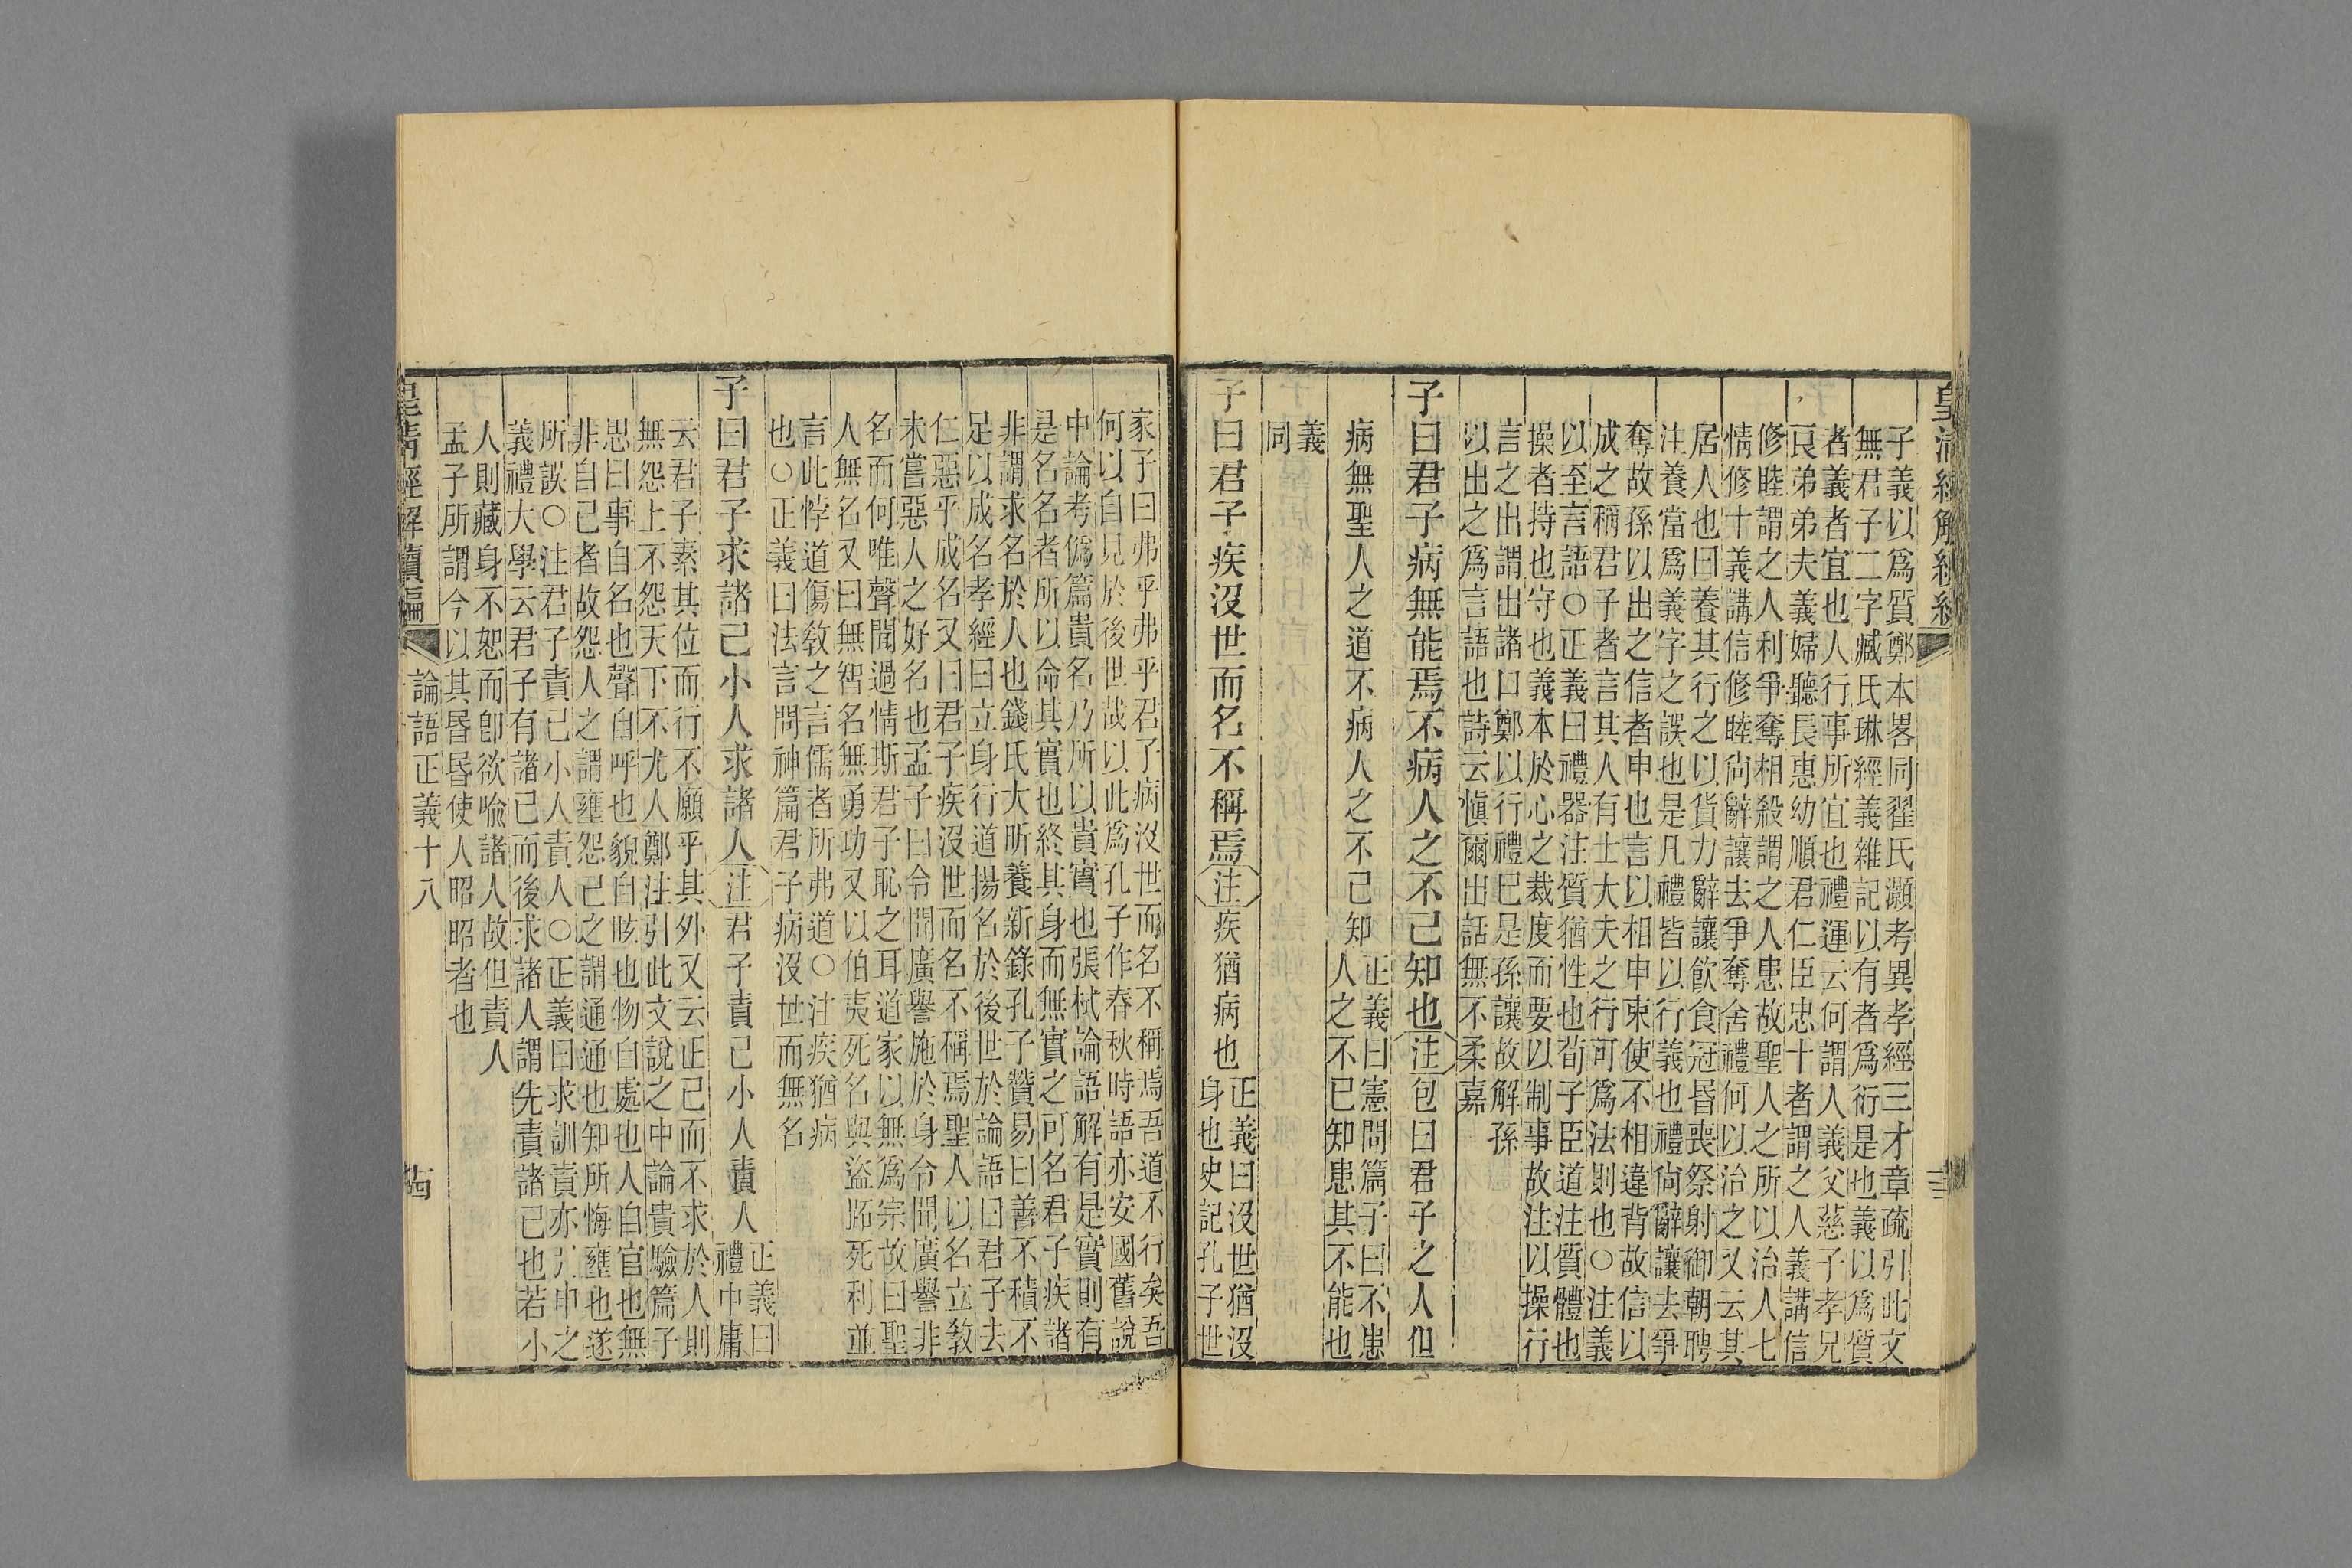 皇清經解續編
子義以爲質鄭本畧同翟氏灝考異孝經三才章疏引此文
無君子二字臧氏琳經義雜記以有者爲衍是也義以爲質
者義者宜也人行事所宜也禮運云何謂人義父慈子孝兄
良弟弟夫義婦聽長惠幼順君仁臣忠十者謂之人義講信
修睦謂之人利爭奪相殺謂之人患故聖人之所以治人七
情修十義講信修睦尙辭讓去爭奪舍禮何以治之又云其
居人也曰養其行之以貨力辭讓飮食冠昏喪祭射御朝聘
注養當爲義字之誤也是凡禮皆以行義也禮尙辭讓去爭
奪故孫以出之信者申也言以相申束使不相違背故信以
成之稱君子者言其人有士大夫之行可爲法則也○注義
以至言語○正義曰禮器注質猶性也荀子臣道注質體也
操者持也守也義本於心之裁度而要以制事故注以操行
言之出謂出諸口鄭以行禮巳是孫讓故解孫
以出之爲言語也詩云愼爾出話無不柔嘉
子曰君子病無能焉不病人之不己知也注包曰君子之人但
病無聖人之道不病人之不己知
正義曰憲問篇子曰不患
人之不己知患其不能也
義
同
子曰君子疾沒世而名不稱焉注疾猶病也
正義曰沒世猶沒
身也史記孔子世
家子曰弗乎弗乎君子病沒世而名不稱焉吾道不行矣吾
何以自見於後世哉以此爲孔子作春秋時語亦安國舊說
中論考僞篇貴名乃所以貴實也張栻論語解有是實則有
是名名者所以命其實也終其身而無實之可名君子疾諸
非謂求名於人也錢氏大昕養新錄孔子贊易曰善不積不
足以成名孝經曰立身行道揚名於後世於論語曰君子去
仁惡乎成名又曰君子疾沒世而名不稱焉聖人以名立敎
未嘗惡人之好名也孟子曰令聞廣譽施於身令聞廣譽非
名而何唯聲聞過情斯君子恥之耳道家以無爲宗故曰聖
人無名又曰無智名無勇功又以伯夷死名與盜跖死利並
言此悖道傷敎之言儒者所弗道○注疾猶病
也○正義曰法言問神篇君子病沒世而無名
子曰君子求諸己小人求諸人注君子責己小人責人
正義曰
禮中庸
云君子素其位而行不願乎其外又云正己而不求於人則
無怨上不怨天下不尤人鄭注引此文說之中論貴驗篇子
思曰事自名也聲自呼也貌自眩也物自處也人自官也無
非自己者故怨人之謂壅怨己之謂通通也知所悔壅也遂
所誤○注君子責己小人責人○正義曰求訓責亦申之
義禮大學云君子有諸己而後求諸人謂先責諸己也若小
人則藏身不恕而卽欲喩諸人故但責人
孟子所謂今以其昬昬使人昭昭者也
皇淸經解續編
論語正義十八
十四